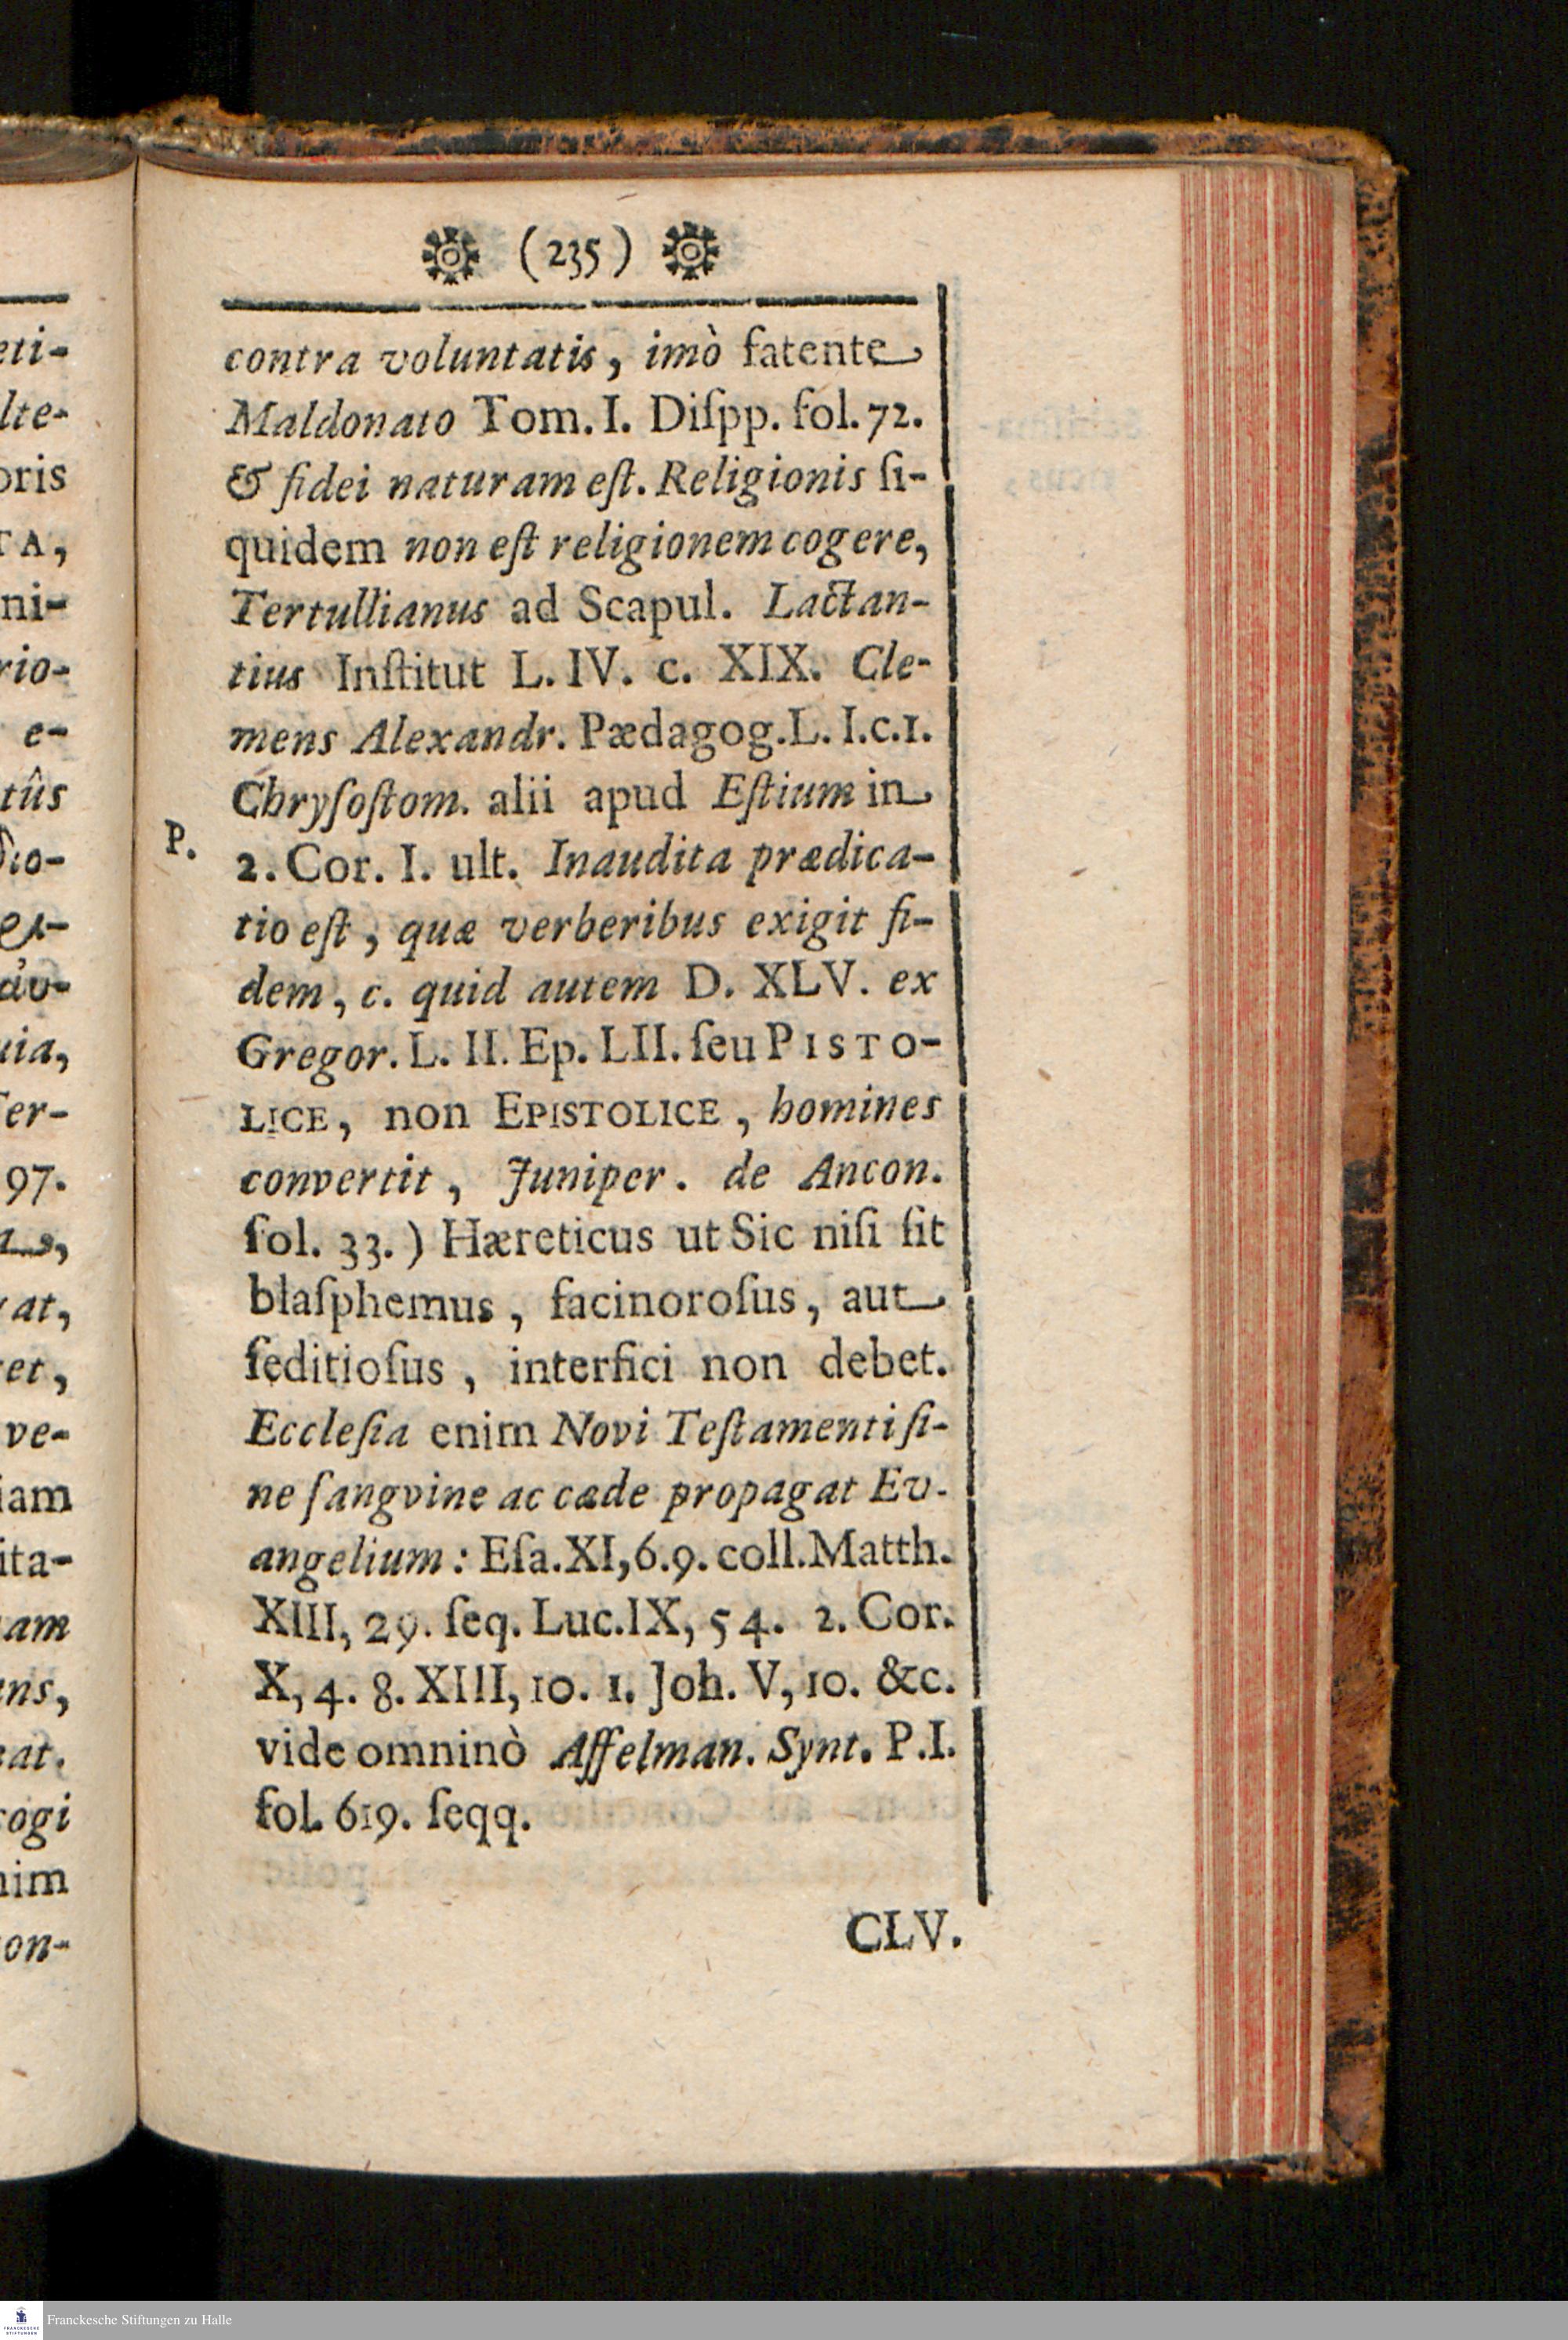 (235)
contra voluntatis, imò fatente
Maldonato Tom. I. Diſpp. fol. 72.
& fidei naturam eſt. Religionis ſi-
quidem non eſt religionem cogere,
Tertullianus ad Scapul. Lactan-
tius Inſtitut L. IV. c. XIX. Cle-
mens Alexandr. Pædagog. L. I. c. 1.
Chryſoſtom. alii apud Eſtium in
P.
2. Cor. I. ult. Inaudita prædica-
tio eſt, quæ verberibus exigit fi-
dem, c. quid autem D. XLV. ex
Gregor. L. II. Ep. LII. ſeu PISTO-
LICE, non EPISTOLICE, homines
convertit, Juniper. de Ancon.
fol. 33.) Hæreticus ut Sic niſi ſit
blaſphemus, facinoroſus, aut
ſeditioſus, interfici non debet.
Eccleſia enim Novi Teſtamenti ſi-
ne ſangvine ac cæde propagat Ev-
angelium: Eſa. XI, 6. 9. coll. Matth.
XIII, 29. ſeq. Luc. IX, 54. 2. Cor.
X, 4. 8. XIII, 10. 1. Joh. V, 10. &c.
vide omninò Affelman. Synt. P. I.
fol. 619. ſeqq.
CLV.
eti-
lte-
oris
TA,
ni-
rio-
e-
tûs
uia,
er-
97.
at,
et,
ve-
iam
ita-
am
ns,
eat.
cogi
nim
on-
FRANCKESCHE
STIFTUNGEN
Franckesche Stiftungen zu Halle